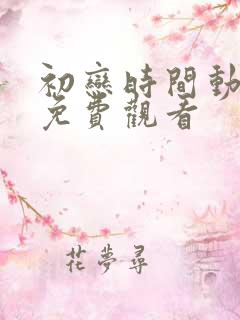 初戀時間動
免費觀看
花夢尋